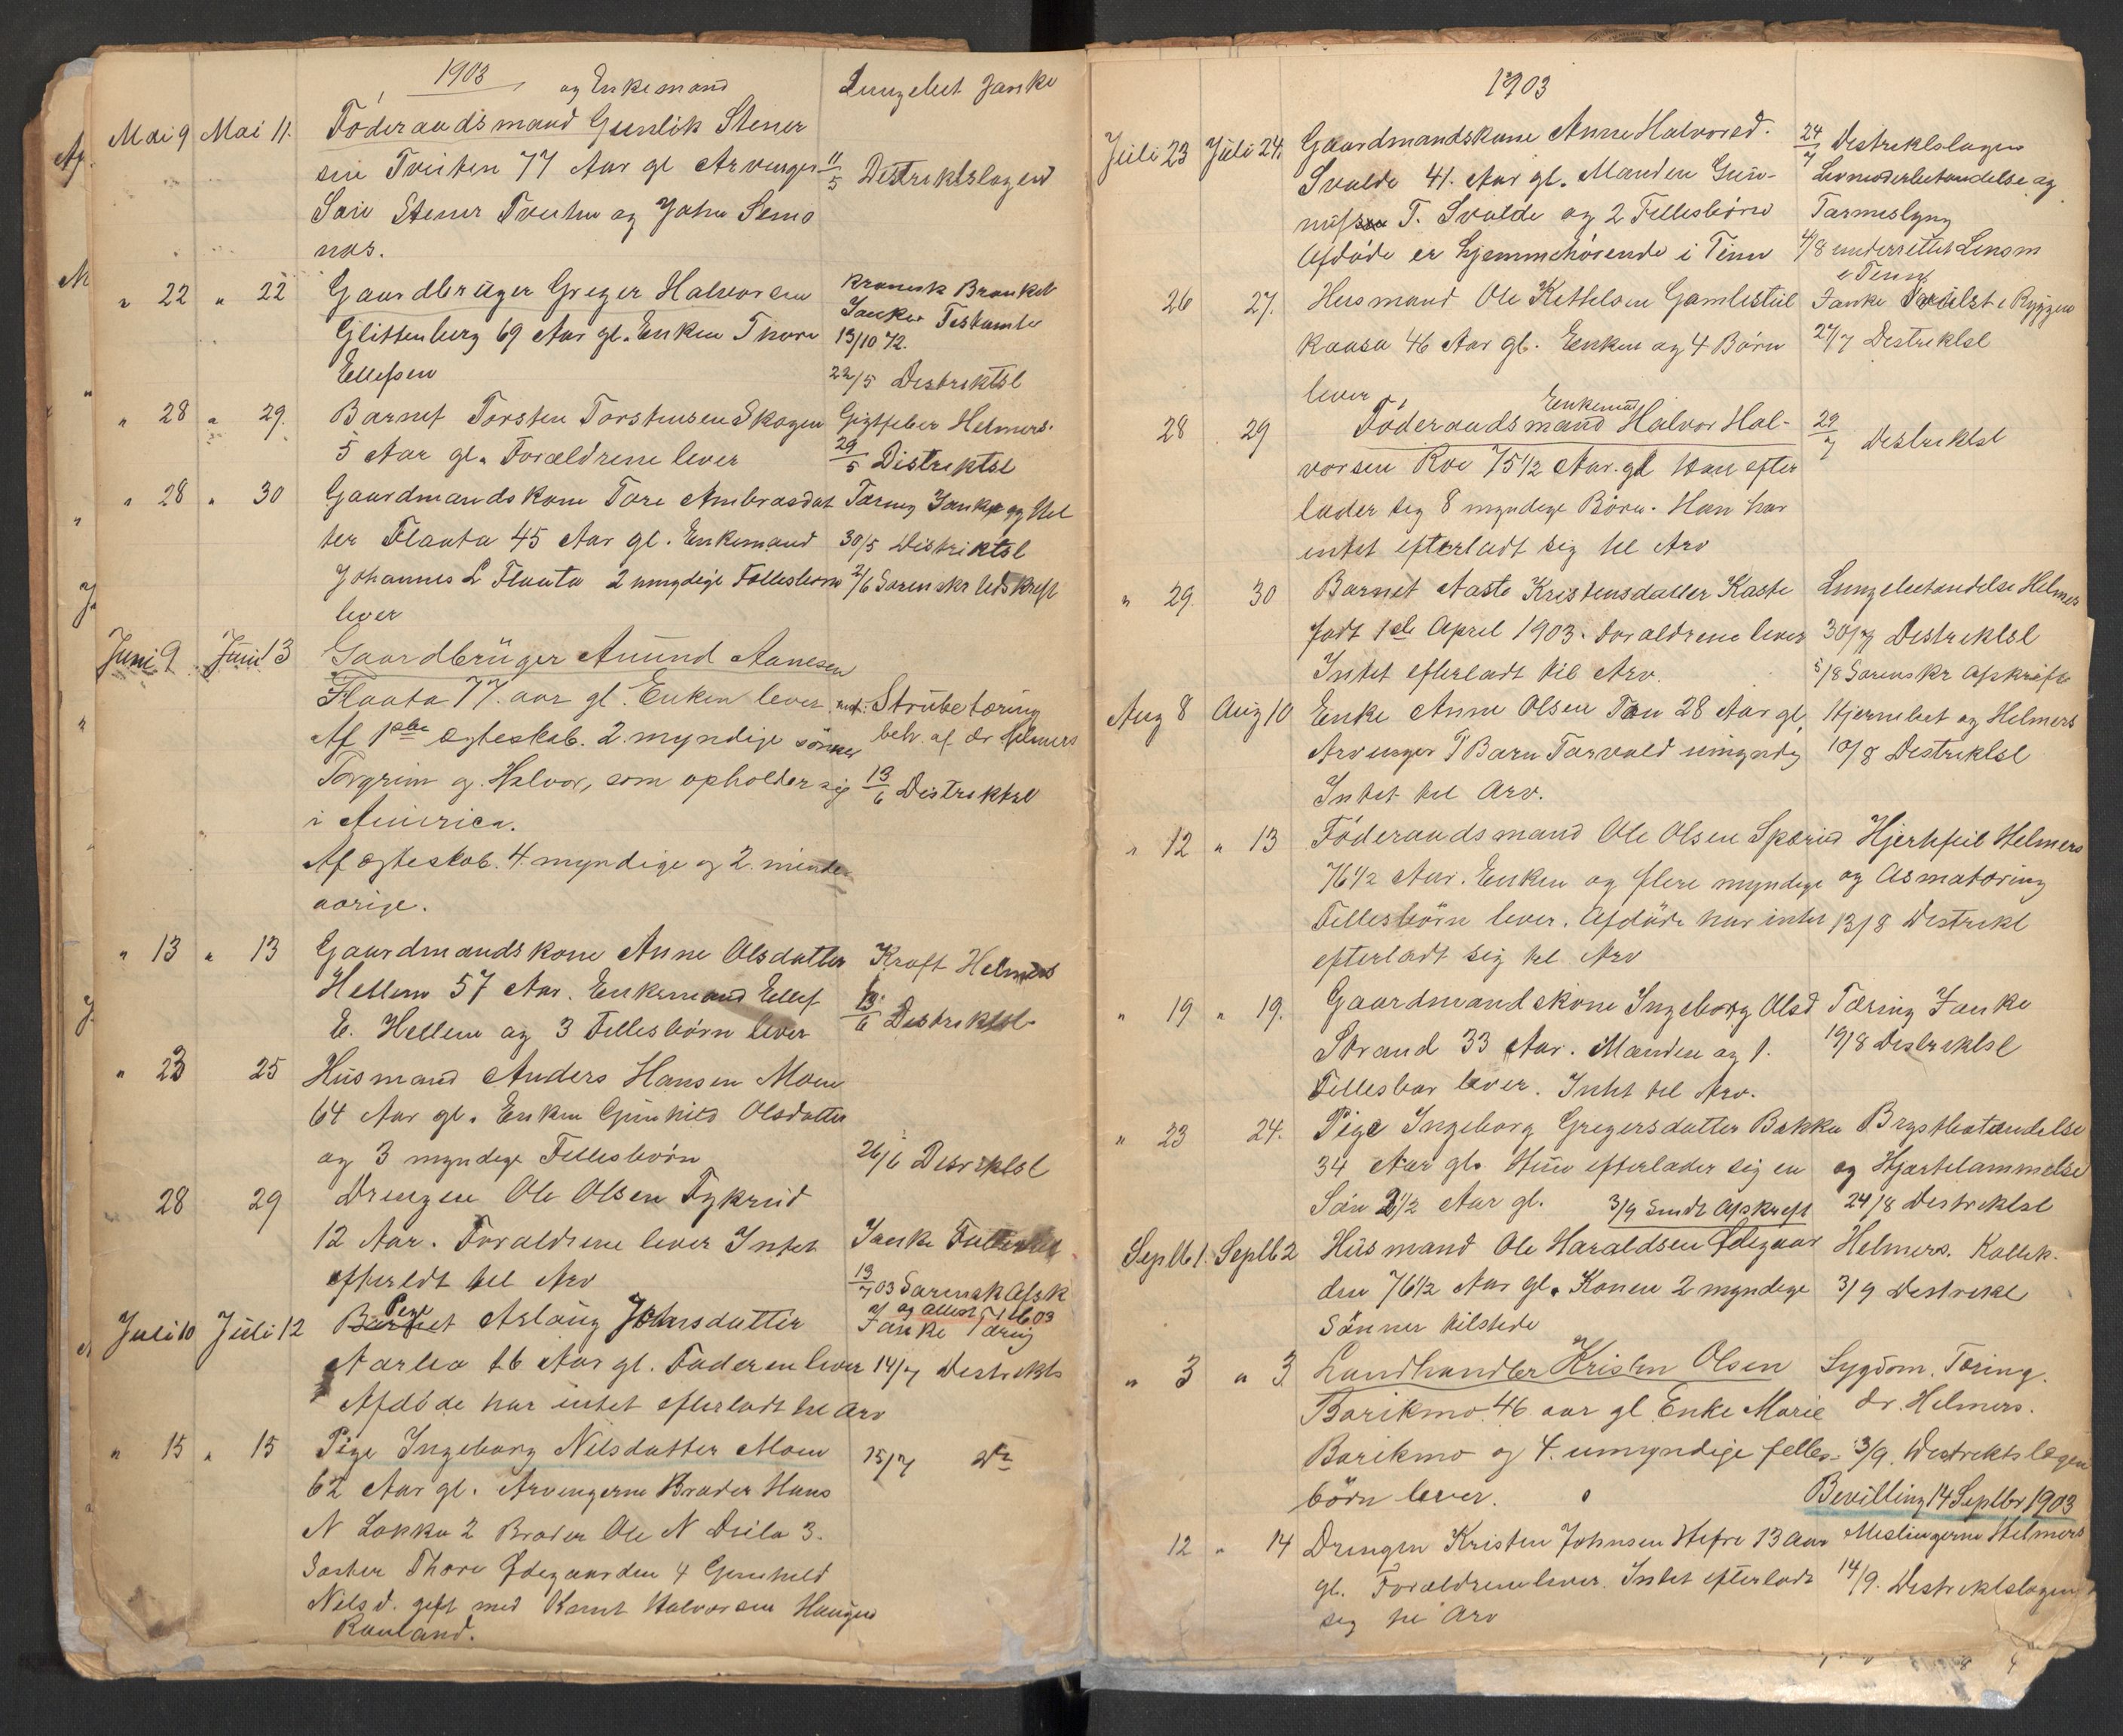 1903
og Enkemand
Lungebet Janke
Mai 9 Mai 11. Föderaadsmand Gunlik Stener
sen Tveiten 77 Aar gl Arvinger 11/5 Distriktslægen
Søn Stener Tveiten og John Semo
nas.
" 22 " 22 Gaardbrüger Greger Halvorsen Kronisk Bronket
Glittenberg 69 Aar gl. Enken Thore Janke Testamte
13/10 72.
Ellefsen 22/5 Destriktsl
" 28 " 29. Barnet Torsten Torstensen Skogen Gigtfeber Helmers.
5 Aar gl. Forældrene lever 29/5 Distriktsl
" 28 " 30 Gaardmandskone Tore Ambrosdat Tæring Janke og Hel
ter Flaata 45 Aar gl. Enkemand 30/5 Distriktsl
Johannes L Flaata 2 umyndige Fellesbørn 2/6 Sorenskr Udskrift
lever
Juni 9 Juni 13 Gaardbrüger Amund Aanesen
Flaata 77. aar gl. Enken lever. Strubetæring
Af 1ste ægteskab. 2. myndige sönner beh. af dr Helmers
Torgrim og Halvor, som opholder sig 13/6 Distriktsl
i America.
Af ægteskab. 4. myndige og 2. minde-
aarige.
" 13 " 13 Gaardmandskone Anne Olsdatter Kræft Helmers
Hellem 57 Aar. Enkemand Ellef 13/6 Destriktsl
E. Hellem og 3 Fellesbørn lever
" 23 25 Hüsmand Anders Hansen Moen
64 Aar gl. Enken Gunhild Olsdatter
og 3 myndige Fellesbörn 26/6 Destriktsl
28 29 Drengen Ole Olsen Tykrud
12 Aar. Forældrene lever Intet Janke
efterladt til Arv 13/7 03 Sorensk Afsk
og attest 03
Juli 10 Jüli 12 Barnet Pige Aslaug Johnsdatter Janke Tæring
Aarlia 16 Aar gl. Faderen lever 14/7 Destrikts
Afdöde har intet efterladt til Arv
" 15 " 15 Pige Ingeborg Nilsdatter Moen 15/7 Do
62 Aar gl. Arvingerne Broder Hans
N Løkka 2 Broder Ole N Dsila 3.
Søster Thore Ødegaarden 4 Gunhild
Nilsd. gift med Knut Halvorsen Haugen
Rauland.
1903
Jüli 23 Jüli 24. Gaardmandskone Anne Halvorsd. 24/7 Destriktslægen
Svalde 41. Aar gl. Manden Gün- og
nuf T. Svalde og 2 Fellesbörn Tarmeslyng
Afdöde er hjemmehörende i Tinn 4/8 underrettet Lensm
i Tinn
26 27. Husmand Ole Kittelsen Gamlestül Janke i Ryggen
Kaasa 46 Aar gl. Enken og 4 Börn 27/7 Destriktsl
lever
28 29 Enkemd Föderaadsmand Halvor Hal- 29/7 Destriktsl
vorsen Roe 75 1/2 Aar. gl Han efter
lader sig 8 myndige Börn. Han har
intet efterladt sig til Arv
" 29. 30 Barnet Aaste Kristensdatter Kaste Lungebetændelse Helmers
født 1ste April 1903. Forældrene lever 30/7 Destriktsl
Intet efterladt til Arv. 5/8 Sorenskr Afskrift
Aug 8 Aug 10 Enke Anne Olsen Tøn 28 Aar gl Hjernebet og Helmers
Arvinger 1 Barn Torvald umyndig 10/8 Destriktsl
Intet til Arv.
" 12 " 13 Föderaadsmand Ole Olsen Sperud Hjertefeil Helmers
76 1/2 Aar. Enken og flere myndige og Asmatæring
Fellesbörn lever. Afdöde har intet 13/8 Destrikl
efterladt sig til Arv
" 19 " 19. Gaardmandskone Ingeborg Olsd Tæring Janke
Strand 33 Aar. Manden og 1. 19/8 Destriktsl
Fellesbar lever. Intet til Arv.
" 23 24. Pige Ingeborg Gregersdatter Bakka Brystbetændelse
34 Aar gl. Hun efterlader sig en og Hjærtelammelse
Søn 2 1/2 Aar gl. 3/9 Sendt Afskrift 24/8 Destriktsl
Septb 1. Septb 2 Hüsmand Ole Haraldsen Ødegaar Helmers.
den 76 1/2 Aar gl. Konen 2 myndige 3/9 Destriksl
Sönner tilstede
" 3 " 3. Landhandler Kristen Olsen Sygdom. Tæring.
Barikmo. 46 aar gl Enke Marie dr. Helmers.
Barikmo og 4. umyndige felles- 3/9. Destriktslægen
börn lever. Bevilling 14 Septbr 1903
12 " 14 Drengen Kristen Johnsen Hefre 13 aar Meslingerne Helmers
gl. Forældrene lever. Intet efterladt 14/9. Destriktslægen
sig til Arv